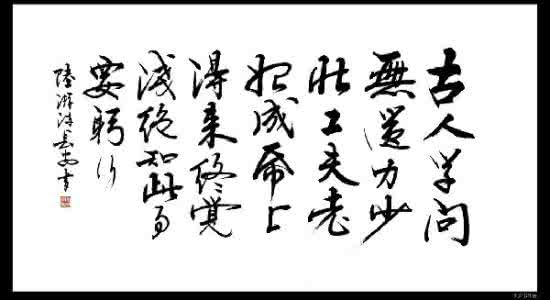 古人学问
無遗力少
壮工夫老
始成帋上
得来终覺
浅绝知此事
要躬行
陸游诗長安书